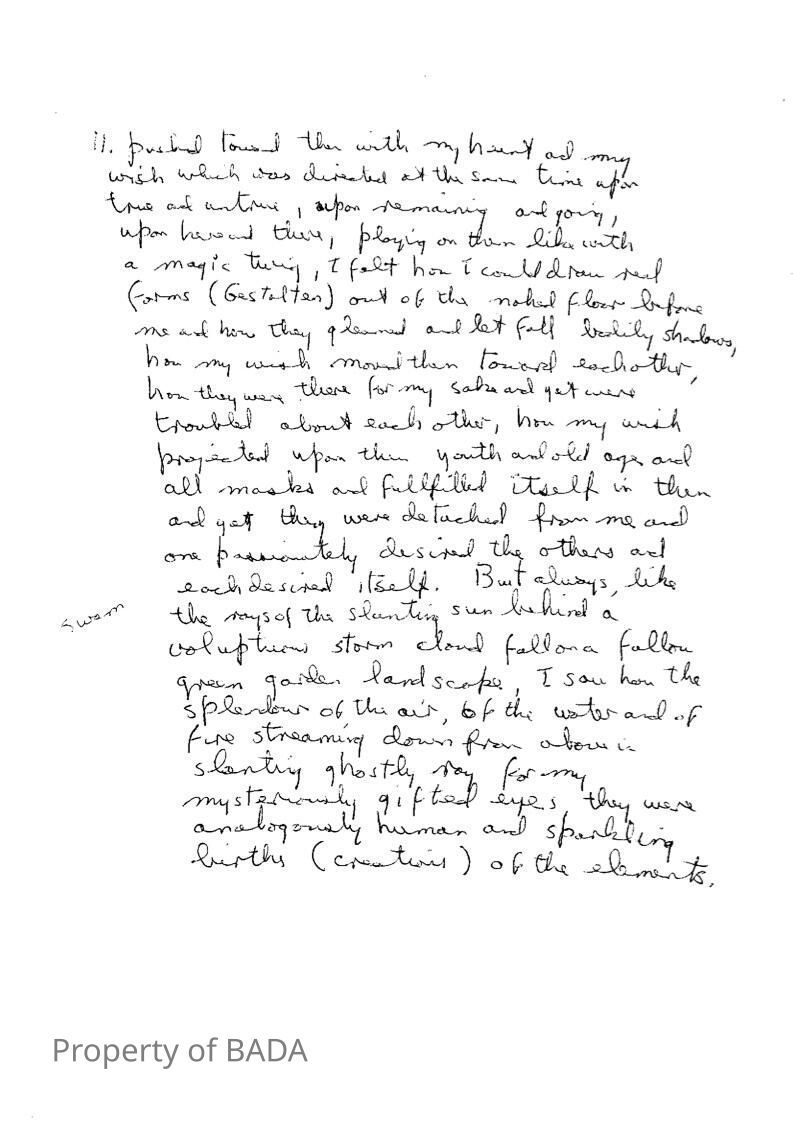 11. pushed toward them with my heart and my
wish which was directed at the same time upon
true and untrue, upon remaining and going,
upon here and there, playing on them like with
a magic twig, I felt how I could draw real
forms (Gestalten) out of the naked floor before
me and how they gleamed and let fall bodily shadows,
how my wish moved them toward each other,
how they were there for my sake and yet were
troubled about each other, how my wish
projected upon them youth and old age and
all masks and fullfilled itself in them
and yet they were detached from me and
one passionately desired the others and
each desired itself. But always, like
swam
the rays of the slanting sun behind a
voluptuous storm cloud fall on a fallow
green garden landscape, I saw how the
splendour of the air, of the water and of
fire streaming down from above in
slanting ghostly ray for my
mysteriously gifted eyes, they were
analogously human and sparkling
births (creations) of the elements.
Property of BADA